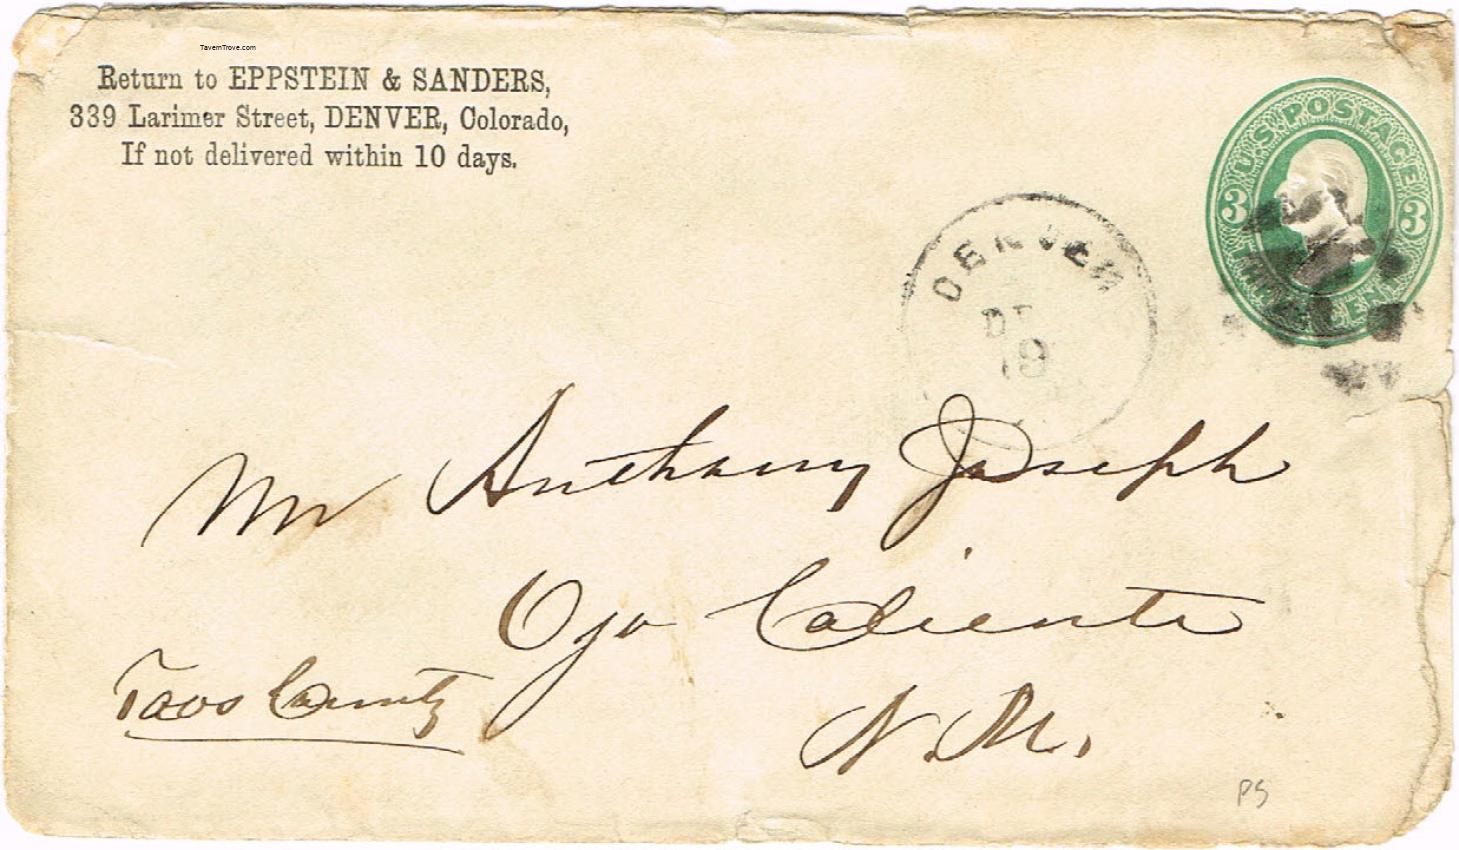 TavernTrove.com
Return to EPPSTEIN & SANDERS,
339 Larimer Street, DENVER, Colorado,
If not delivered within 10 days.
U.S. POSTAGE
3 3
DENVER
19
Mr Anthony Joseph
Ojo Caliente
Taos County
N.M.
PS